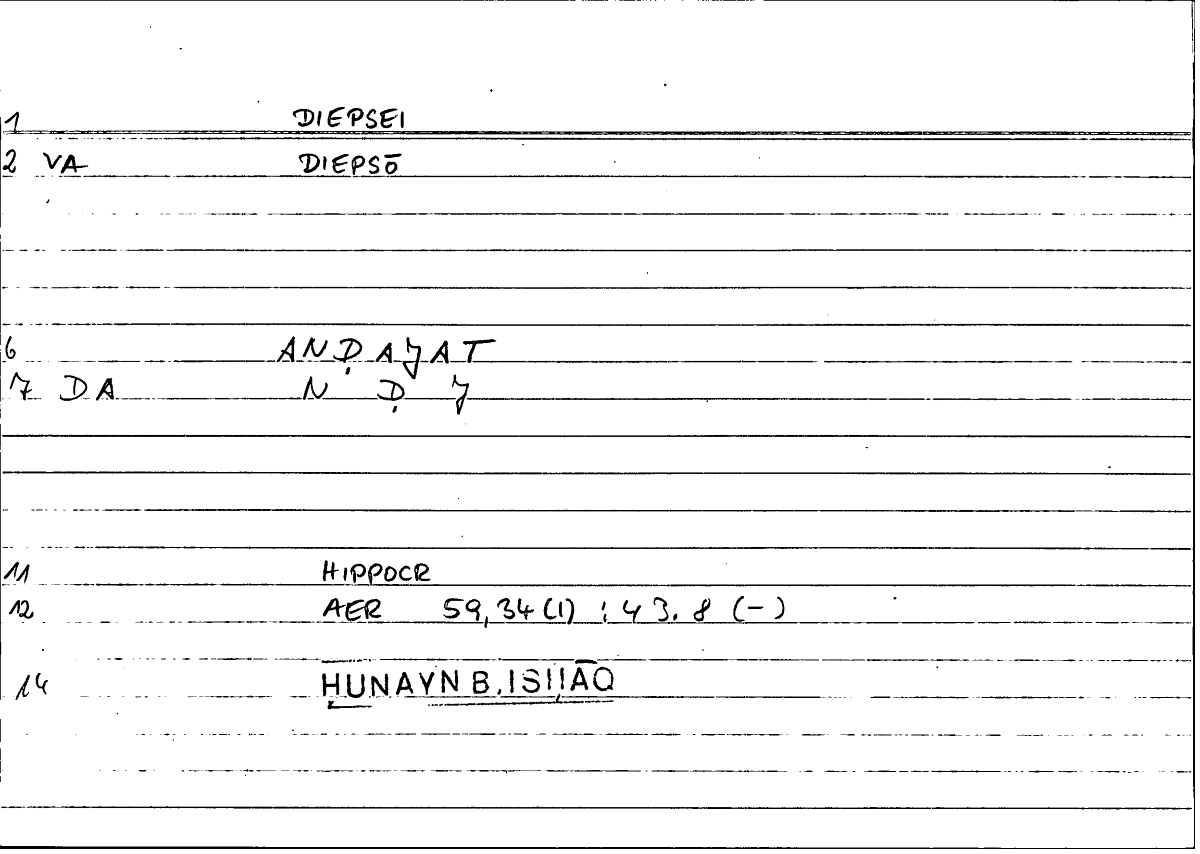 1 DIEPSEI
2 VA DIEPSŌ
6 ANḌAJAT
7 DA N Ḍ J
11 HIPPOCR
12 AER 59,34(1) : 43.8 (-)
14 ḤUNAYN B. ISḤĀQ